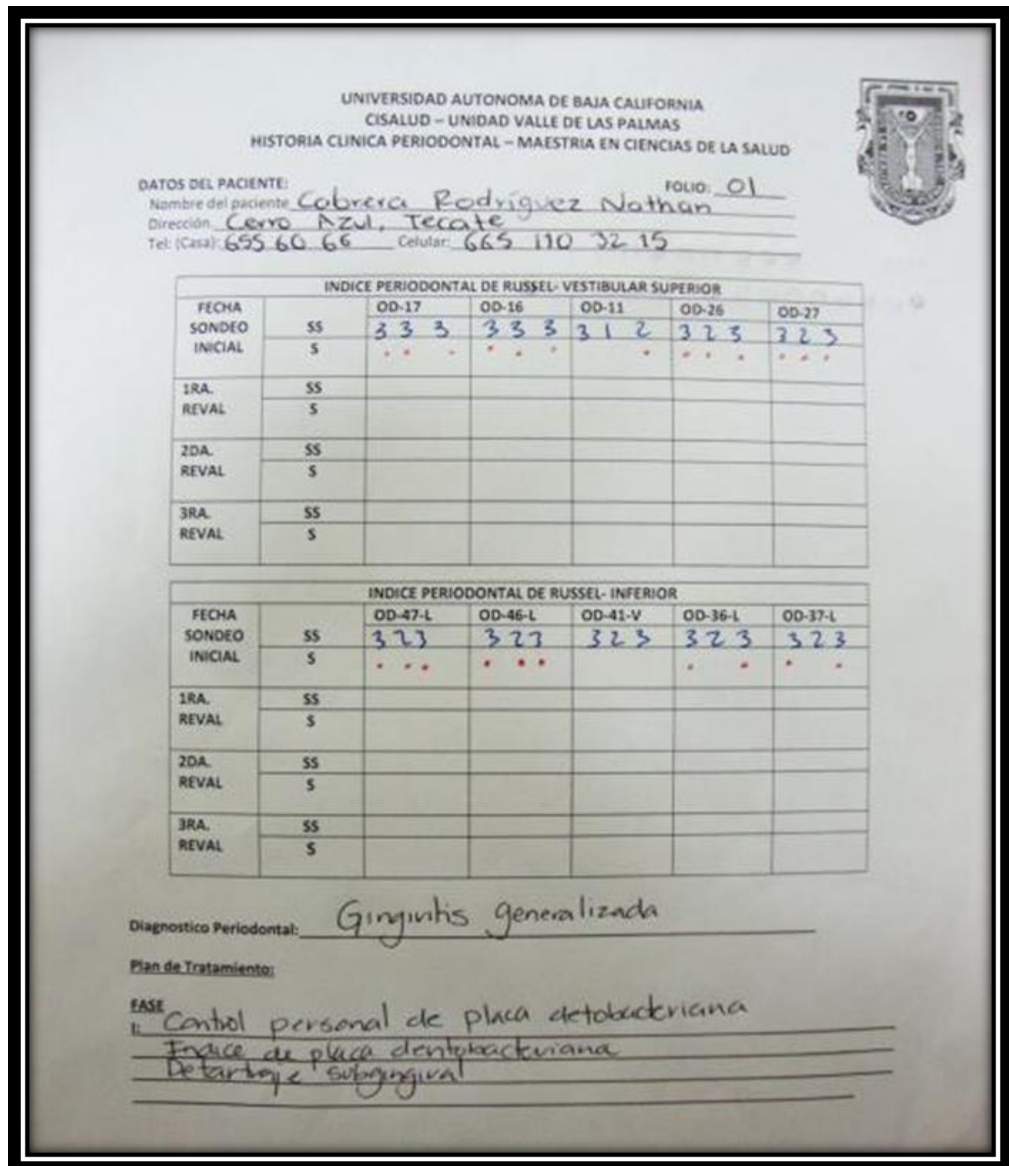 UNIVERSIDAD AUTONOMA DE BAJA CALIFORNIA
CISALUD – UNIDAD VALLE DE LAS PALMAS
HISTORIA CLINICA PERIODONTAL – MAESTRIA EN CIENCIAS DE LA SALUD
DATOS DEL PACIENTE: FOLIO: 01
Nombre del paciente Cabrera Rodríguez Nathan
Dirección Cerro Azul, Tecate
Tel: (Casa): 655 60 66 Celular: 665 110 32 15
INDICE PERIODONTAL DE RUSSEL- VESTIBULAR SUPERIOR
FECHA OD-17 OD-16 OD-11 OD-26 OD-27
SONDEO SS 3 3 3 3 3 3 3 1 2 3 2 3 3 2 3
INICIAL S
1RA. SS
REVAL S
2DA. SS
REVAL S
3RA. SS
REVAL S
INDICE PERIODONTAL DE RUSSEL- INFERIOR
FECHA OD-47-L OD-46-L OD-41-V OD-36-L OD-37-L
SONDEO SS 3 2 3 3 2 3 3 2 3 3 2 3 3 2 3
INICIAL S
1RA. SS
REVAL S
2DA. SS
REVAL S
3RA. SS
REVAL S
Diagnostico Periodontal: Gingivitis generalizada
Plan de Tratamiento:
FASE
I: Control personal de placa detobacteriana
Indice de placa dentobacteriana
Detartraje subgingival